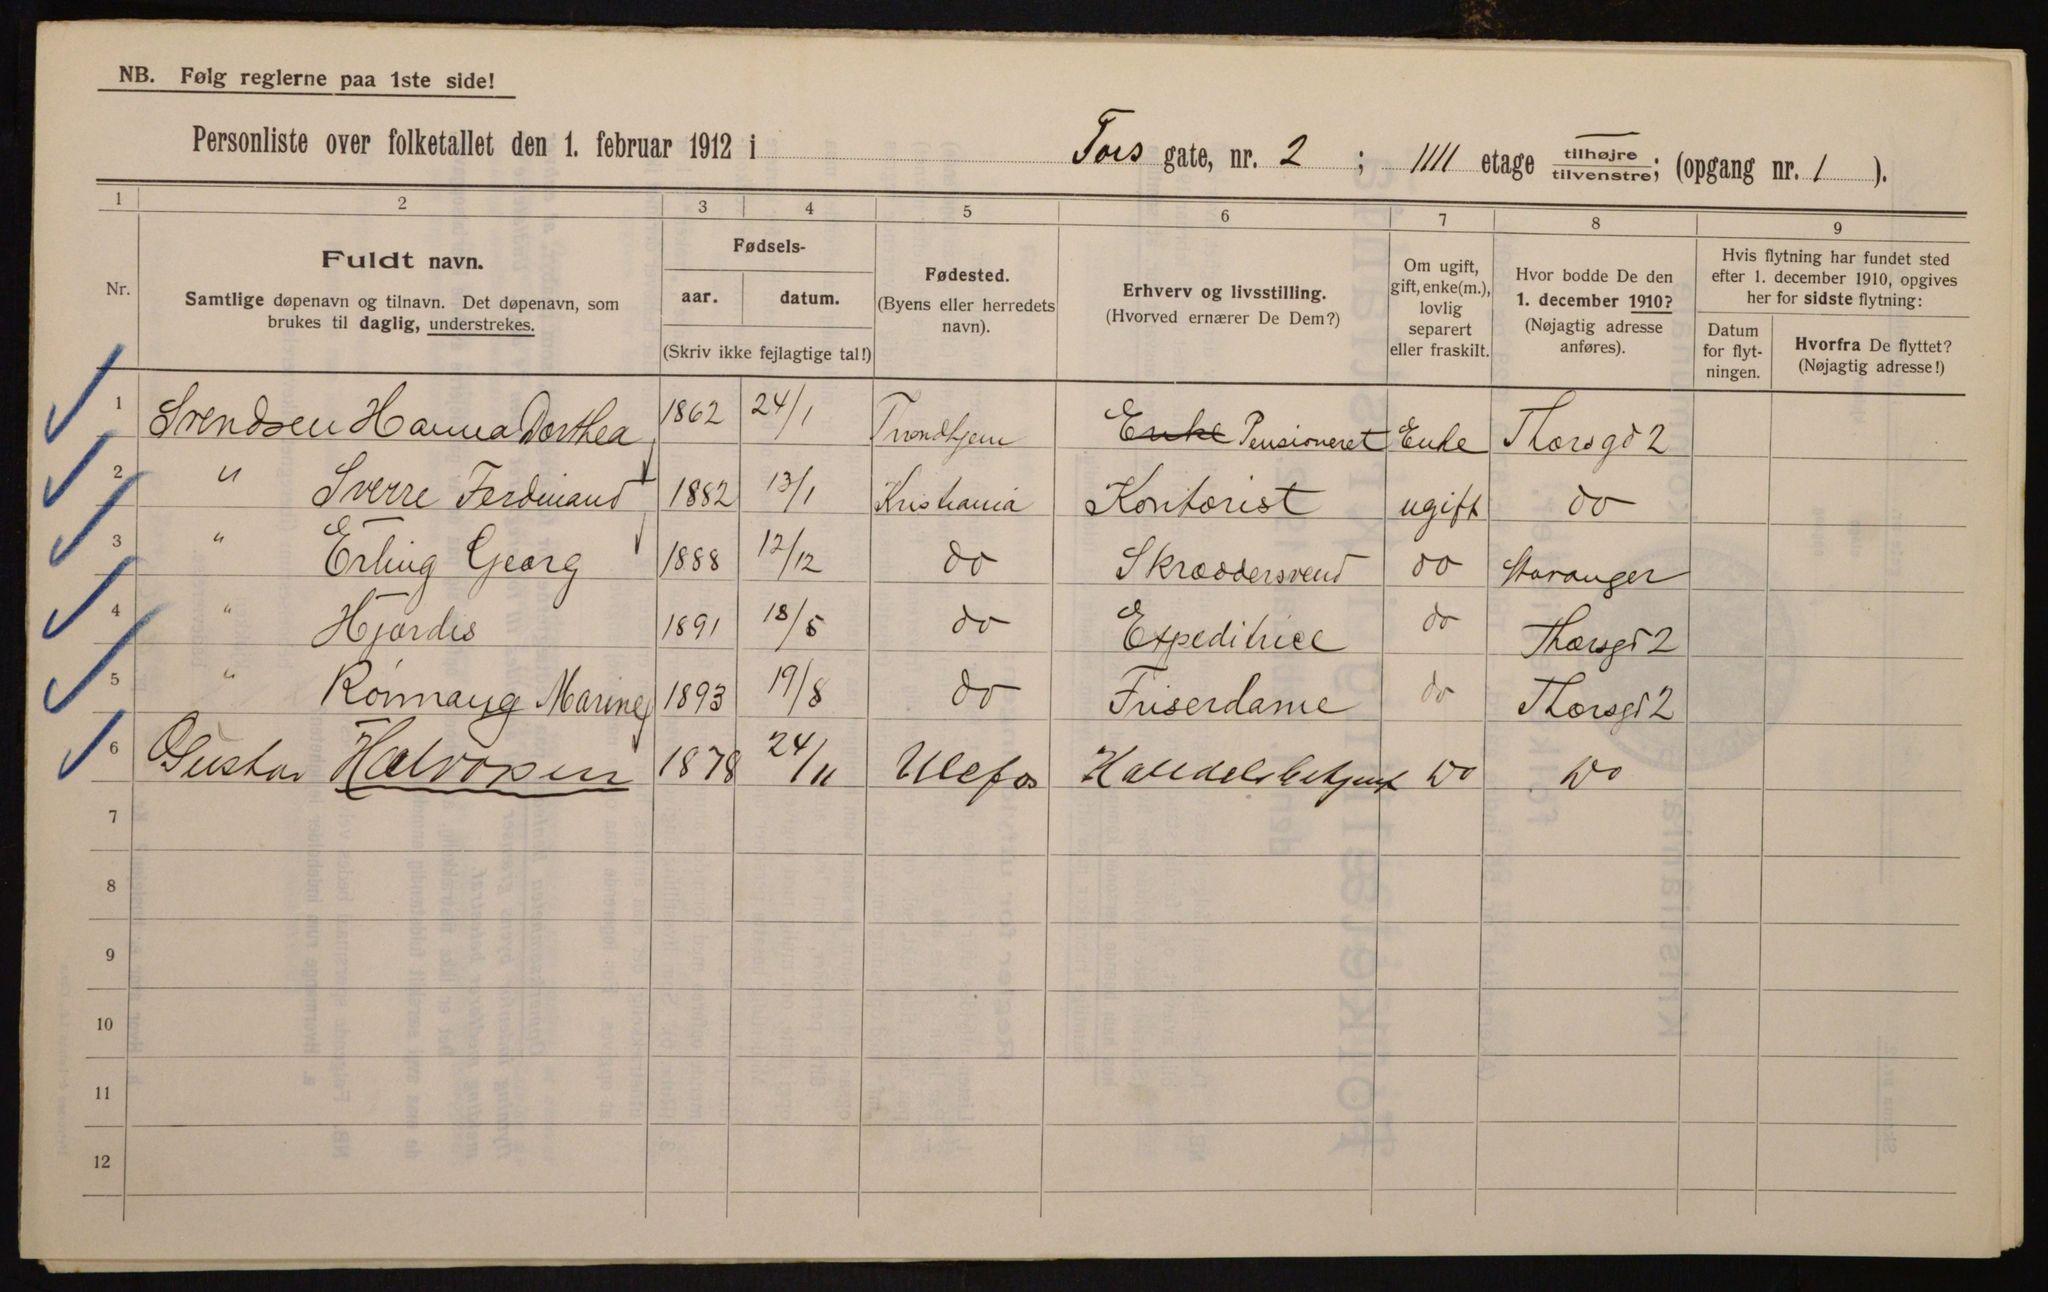 NB. Følg reglerne paa 1ste side!
Personliste over folketallet den 1. februar 1912 i Tors gate, nr. 2 ; IIII etage tilhøjre tilvenstre; (opgang nr. 1 ).
1 2 3 4 5 6 7 8 9
Nr.
Fuldt navn.
Samtlige døpenavn og tilnavn. Det døpenavn, som
brukes til daglig, understrekes.
Fødsels-
aar. datum.
(Skriv ikke fejlagtige tal!)
Fødested.
(Byens eller herredets
navn).
Erhverv og livsstilling.
(Hvorved ernærer De Dem?)
Om ugift,
gift, enke(m.),
lovlig
separert
eller fraskilt.
Hvor bodde De den
1. december 1910?
(Nøjagtig adresse
anføres).
Hvis flytning har fundet sted
efter 1. december 1910, opgives
her for sidste flytning:
Datum
for flyt-
ningen.
Hvorfra De flyttet?
(Nøjagtig adresse!)
1 Svendsen Hanna Dorthea 1862 24/1 Trondhjem Enke Pensioneret Enke Thorsgd 2
2 " Sverre Ferdinand 1882 13/1 Kristiania Kontorist ugift do
3 " Erling Georg 1888 12/12 do Skræddersvend do Stavanger
4 " Hjørdis 1891 18/5 do Expeditrice do Thorsgd 2
5 " Rønnaug Marine 1893 19/8 do Friserdame do Thorsgd 2
6 Gustav Halvorsen 1878 24/11 Ulefos Handelsbetjent do do
7
8
9
10
11
12